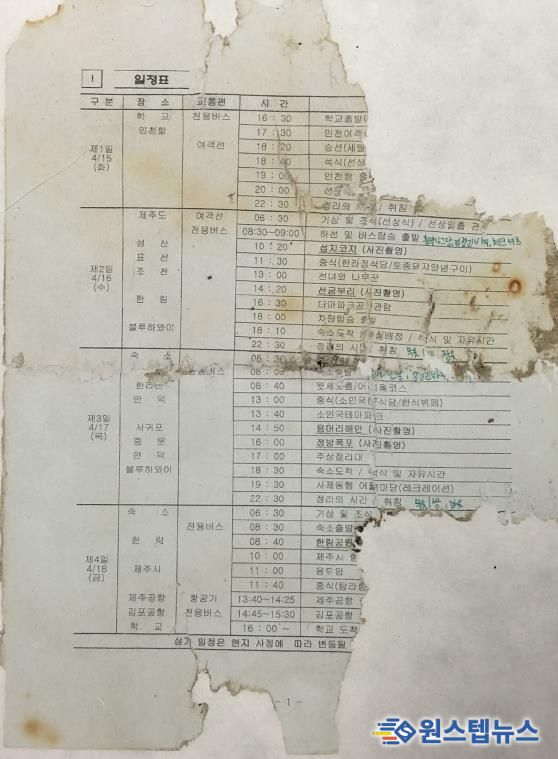 I 일정표
구 분 장 소 교통편 시 간
학 교 전용버스 16 : 30 학교출발
인천항 17 : 30 인천여객
제1일 여객선 18 : 20 승선(세월
4/15 18 : 40 석식(선상
(화) 19 : 00 인천항 출
20 : 00 선상
22 : 30 정리의 / 취침
제주도 여객선 06 : 30 기상 및 조식(선상식) / 선상일출 관
전용버스 08:30~09:00 하선 및 버스탑승 출발
성 산 10 : 20 섭지코지 (사진촬영)
제2일 표 선 11 : 30 중식(한라정식당/토종돼지양념구이)
4/16 조 천 13 : 00 선녀와 나무꾼
(수) 14 : 20 산굼부리 (사진촬영)
한 림 16 : 30 더마파크공연관람
18 : 00 차량탑승 출발
블루하와이 18 : 10 숙소도착 / 실배정 / 석식 및 자유시간
22 : 30 정리의 시간 / 취침
숙 소 06 : 30
08 : 00 숙소출발
한라산 08 : 40 윗세오름/어리목코스
제3일 안 덕 13 : 00 중식(소인국 식당/한식뷔페)
4/17 13 : 40 소인국테마파크
(목) 서귀포 14 : 50 용머리해안 (사진촬영)
중 문 16 : 00 정방폭포 (사진촬영)
안 덕 17 : 00 주상절리대
블루하와이 18 : 30 숙소도착 / 석식 및 자유시간
19 : 30 사제동행 어울 마당(레크레이션)
22 : 30 정리의 시간 / 취침
숙 소 06 : 30 기상 및 조식
전용버스 08 : 30 숙소출발
한 림 08 : 40 한림공원
제4일 10 : 00 제주시
4/18 제주시 11 : 00 용두암
(금) 11 : 40 중식(탐라
제주공항 항공기 13:40~14:25 제주공항
김포공항 전용버스 14:45~15:30 김포공항
학 교 16 : 00 ~ 학교 도착
상기 일정은 현지 사정에 따라 변동될
- 1 -
원스텝뉴스